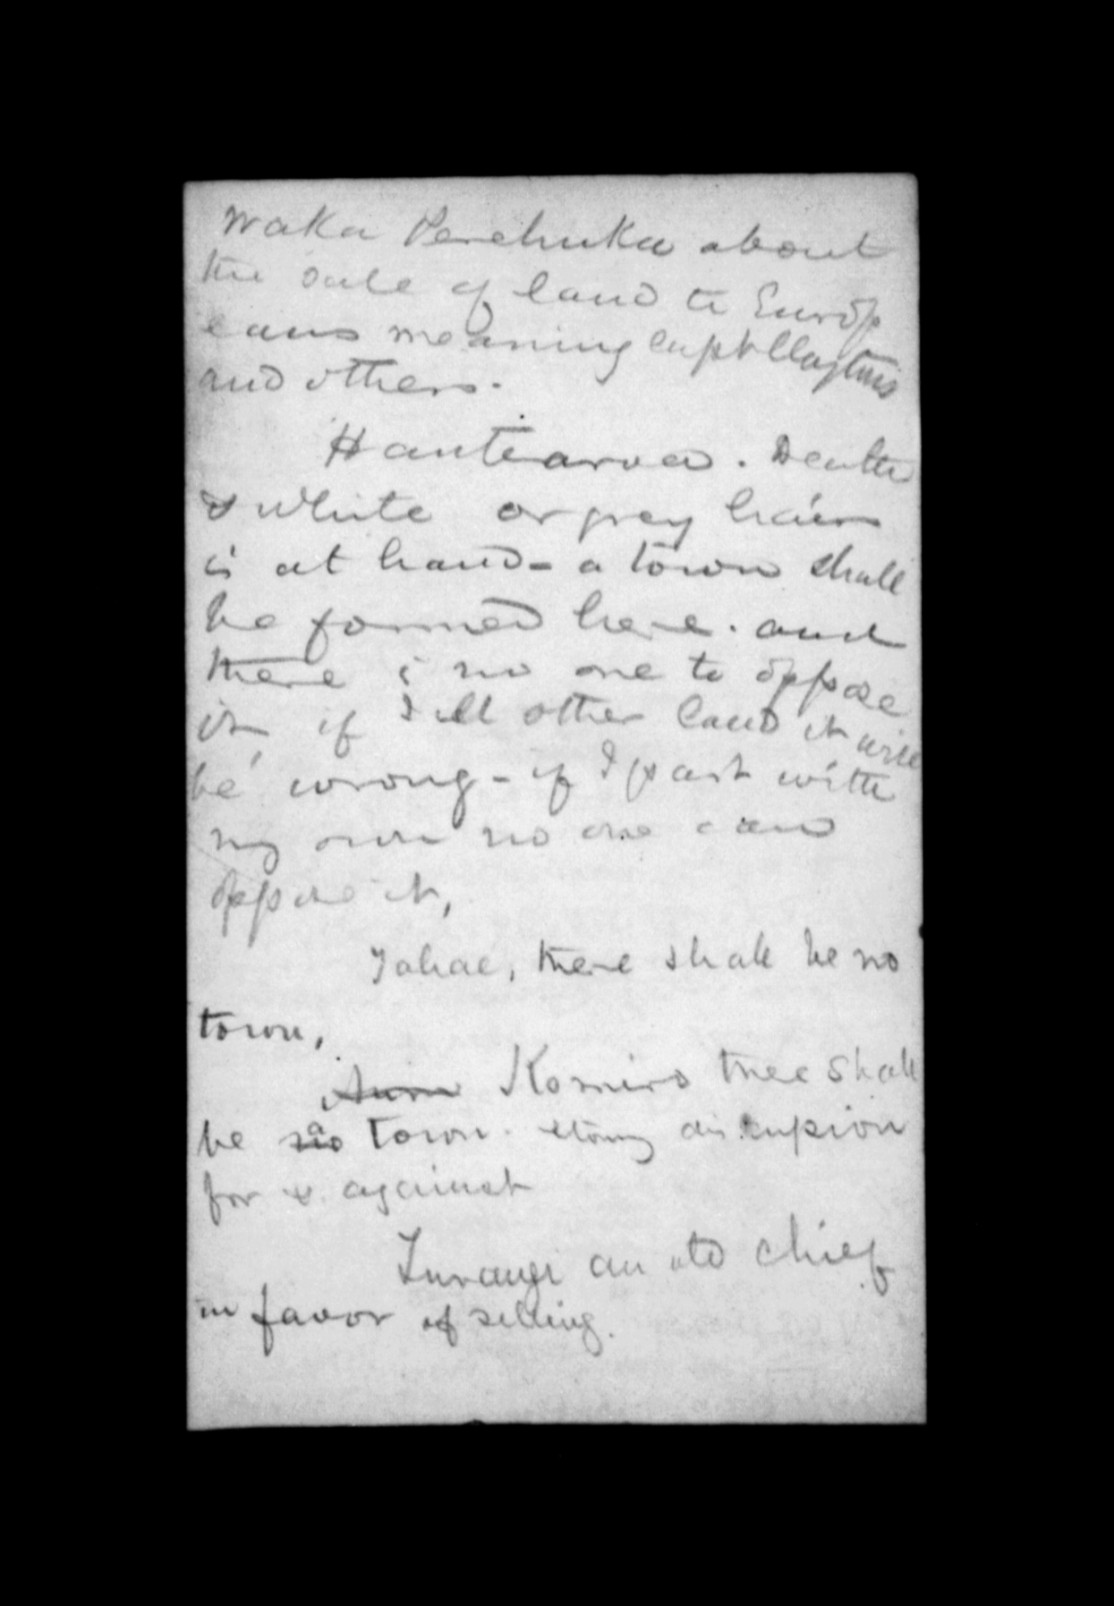 Waka Perehuka about
the sale of land to Europ
eans meaning Capt
and others.
Hautearva. Death
& white or grey hairs
is at hand - a town shall
be formed here. and
there is no one to oppose
it, if I sell other land it will
be wrong - if I part with
my own no one can
oppose it,
Tahae, there shall be no
town,
Komiro there shall
be a town. stormy discussion
for & against
Turangi an old chief
in favor of selling.